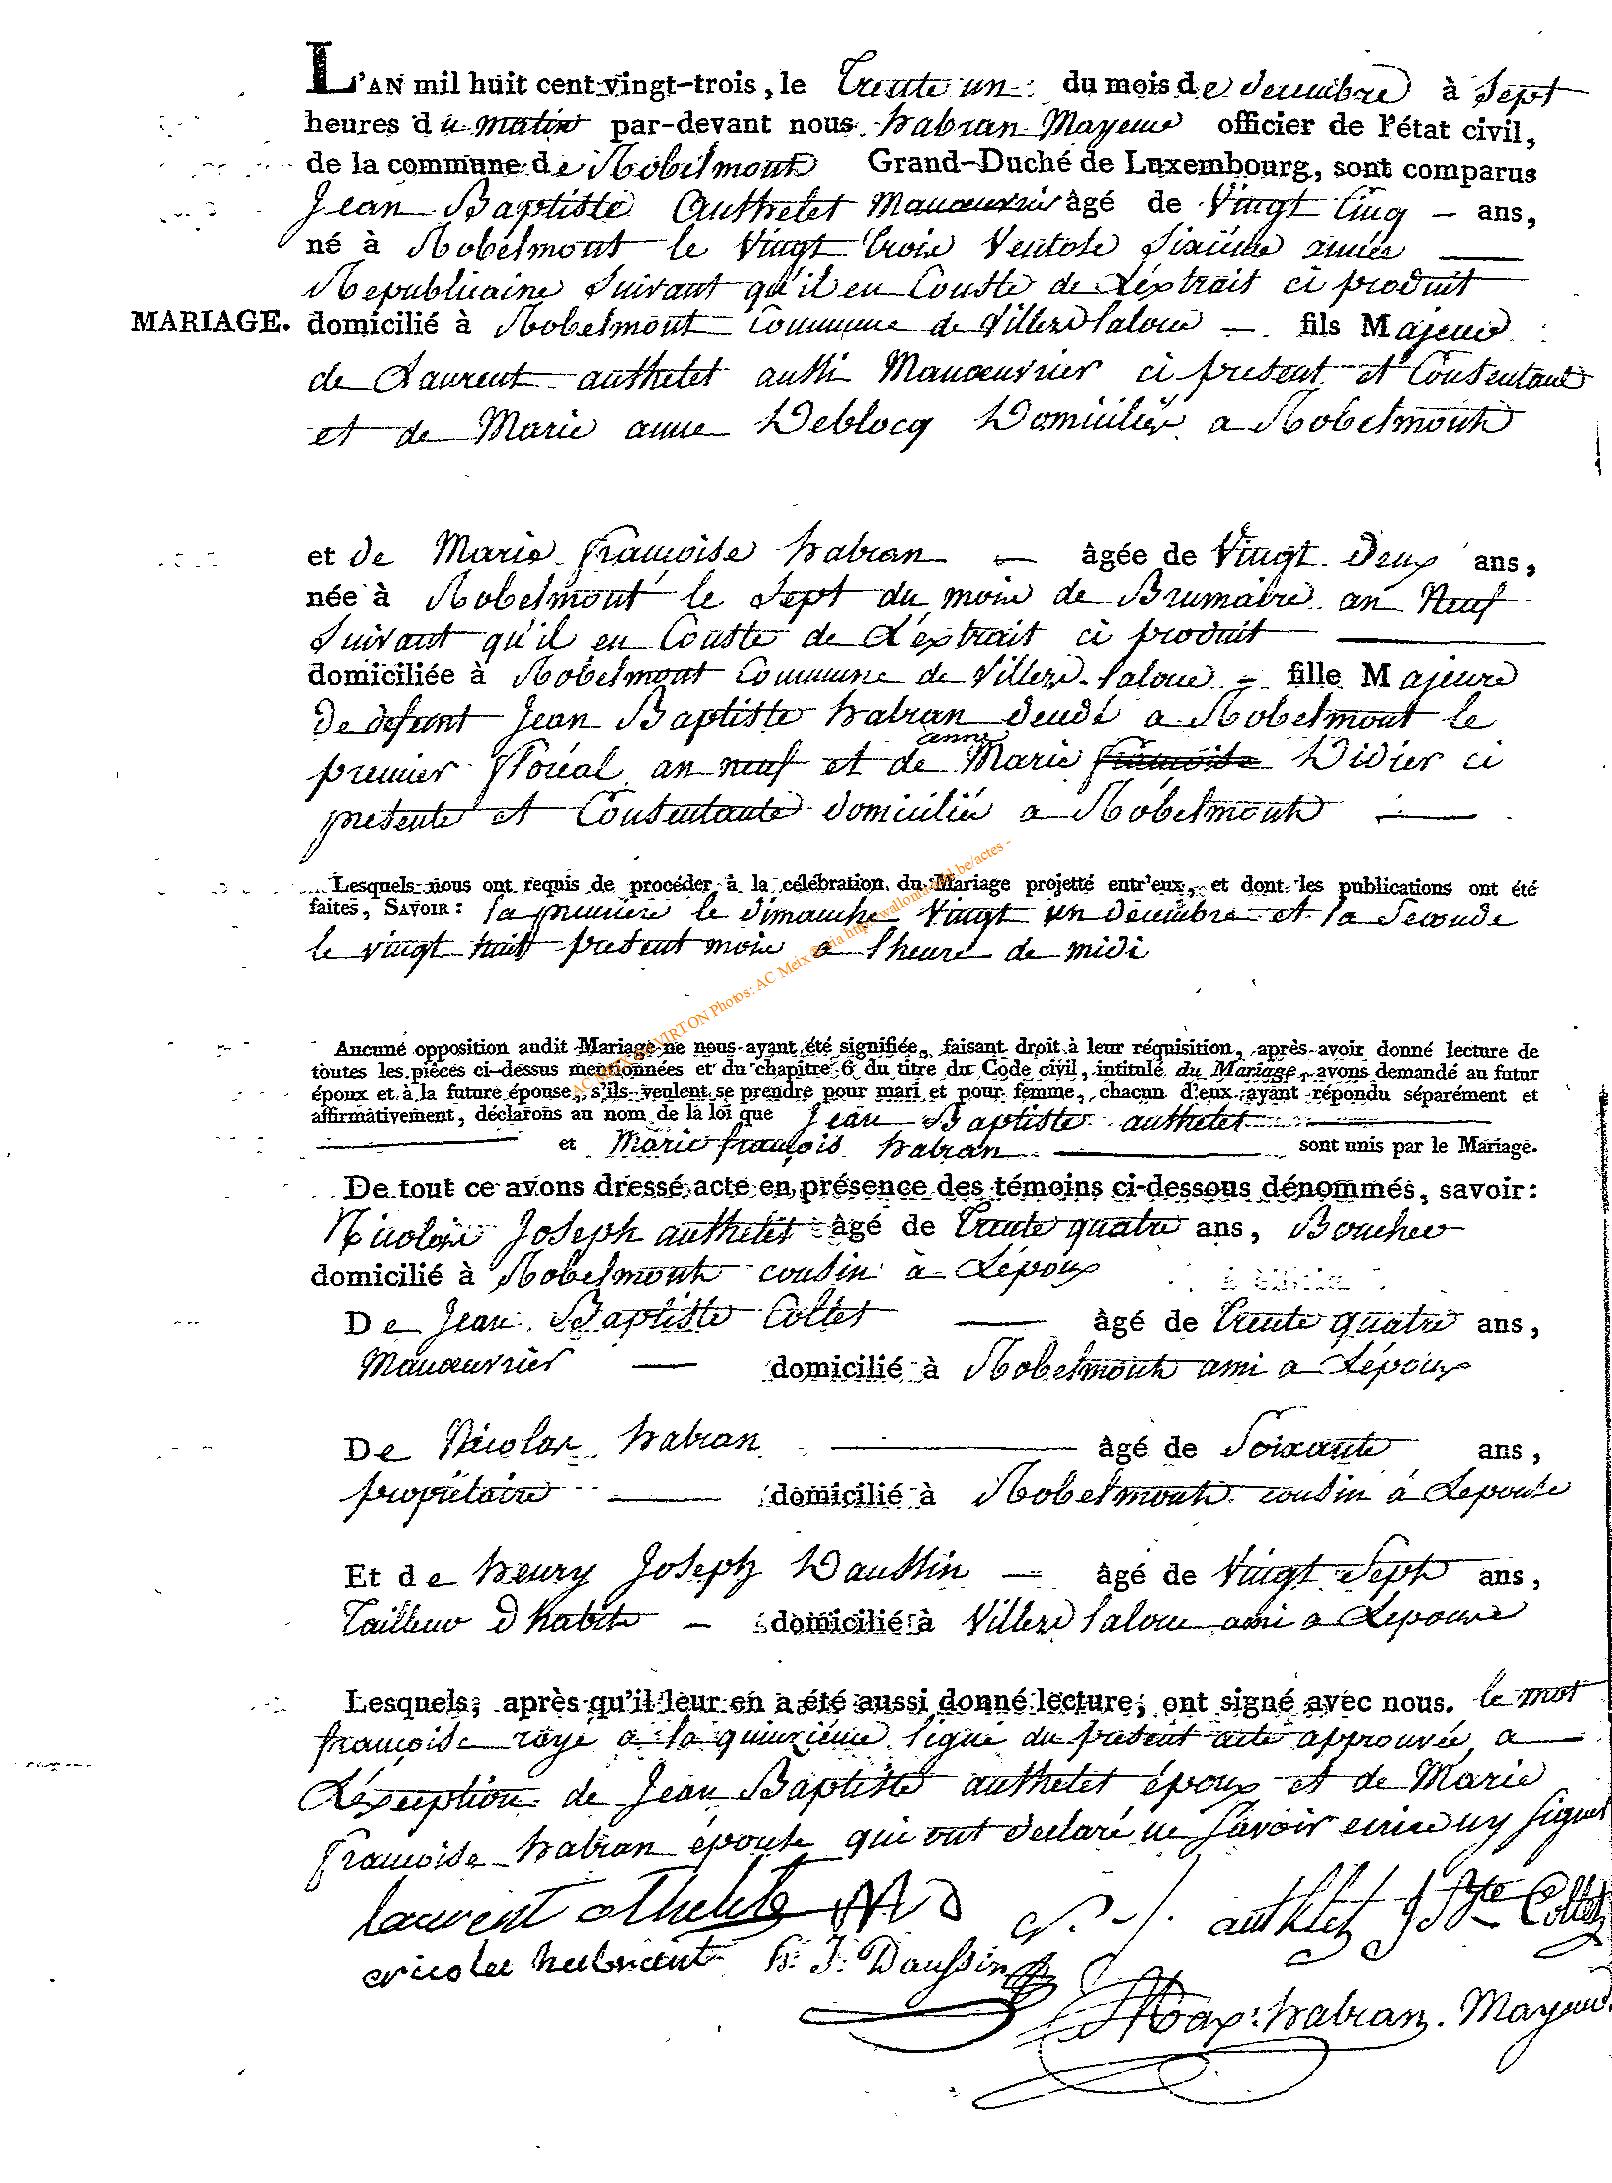 L'AN mil huit cent vingt-trois, le Trente un du mois de decembre à Sept
heures du matin par-devant nous habran Mayeur officier de l'état civil,
de la commune de Robelmont Grand-Duché de Luxembourg, sont comparus
Jean Baptiste Authelet Manœuvrier âgé de Vingt Cinq – ans,
né à Robelmont le Vingt Trois Ventose Sixieme année
Republicaine Suivant qu'il en Conste de L'éxtrait ci produit
MARIAGE. domicilié à Robelmont Commune de Villers Saloue – fils Majeur
de Laurent authelet aussi Manœuvrier ci present et Consentant
et de Marie anne Deblocq Domiciliés a Robelmont
et de Marie françoise habran – âgée de Vingt Deux ans,
née à Robelmont le Sept du mois de Brumaire an Neuf
Suivant qu'il en Conste de L'éxtrait ci produit
domiciliée à Robelmont Commune de Villers Saloue – fille Majeure
De defunt Jean Baptiste habran décédé a Robelmont le
premier floréal an neuf et de Marie anne françoise Didier ci
presente et Consentante domiciliée a Robelmont
Lesquels nous ont requis de procéder à la célébration du Mariage projetté entr'eux, et dont les publications ont été
faites, SAVOIR : la premiere le dimanche Vingt un decembre et la Seconde
le vingt huit present mois a l'heure de midi
Aucune opposition audit Mariage ne nous ayant été signifiée, faisant droit à leur réquisition, après avoir donné lecture de
toutes les pièces ci-dessus mentionnées et du chapitre 6 du titre du Code civil, intitulé du Mariage, avons demandé au futur
époux et à la future épouse, s'ils veulent se prendre pour mari et pour femme, chacun d'eux ayant répondu séparément et
affirmativement, déclarons au nom de la loi que Jean Baptiste authelet
et Marie françois habran sont unis par le Mariage.
De tout ce avons dressé acte en présence des témoins ci-dessous dénommés, savoir :
Nicolas Joseph authelet âgé de Trente quatre ans, Boucher
domicilié à Robelmont cousin à L'époux
De Jean Baptiste Collet âgé de Trente quatre ans,
Manœuvrier domicilié à Robelmont ami a L'époux
De Nicolas habran âgé de Soixante ans,
propriétaire domicilié à Robelmont cousin à Lepouse
Et de henry Joseph Daussin – âgé de Vingt Sept ans,
Tailleur d'habits – domicilié à Villers Saloue ami a Lepouse
Lesquels, après qu'il leur en a été aussi donné lecture, ont signé avec nous. le mot
françoise rayé a la quinzième ligne du present acte approuvée a
L'éxception de Jean Baptiste authelet époux et de Marie
françoise habran épouse qui ont declaré ne Savoir ecrire ny signer
laurent othelet M D N. J. authlet J Bte Collet
nicolas h. J. Daussin
Max: habran. Mayeur
AC MEIX de VIRTON Photos: AC Meix via http wallonia be/actes -